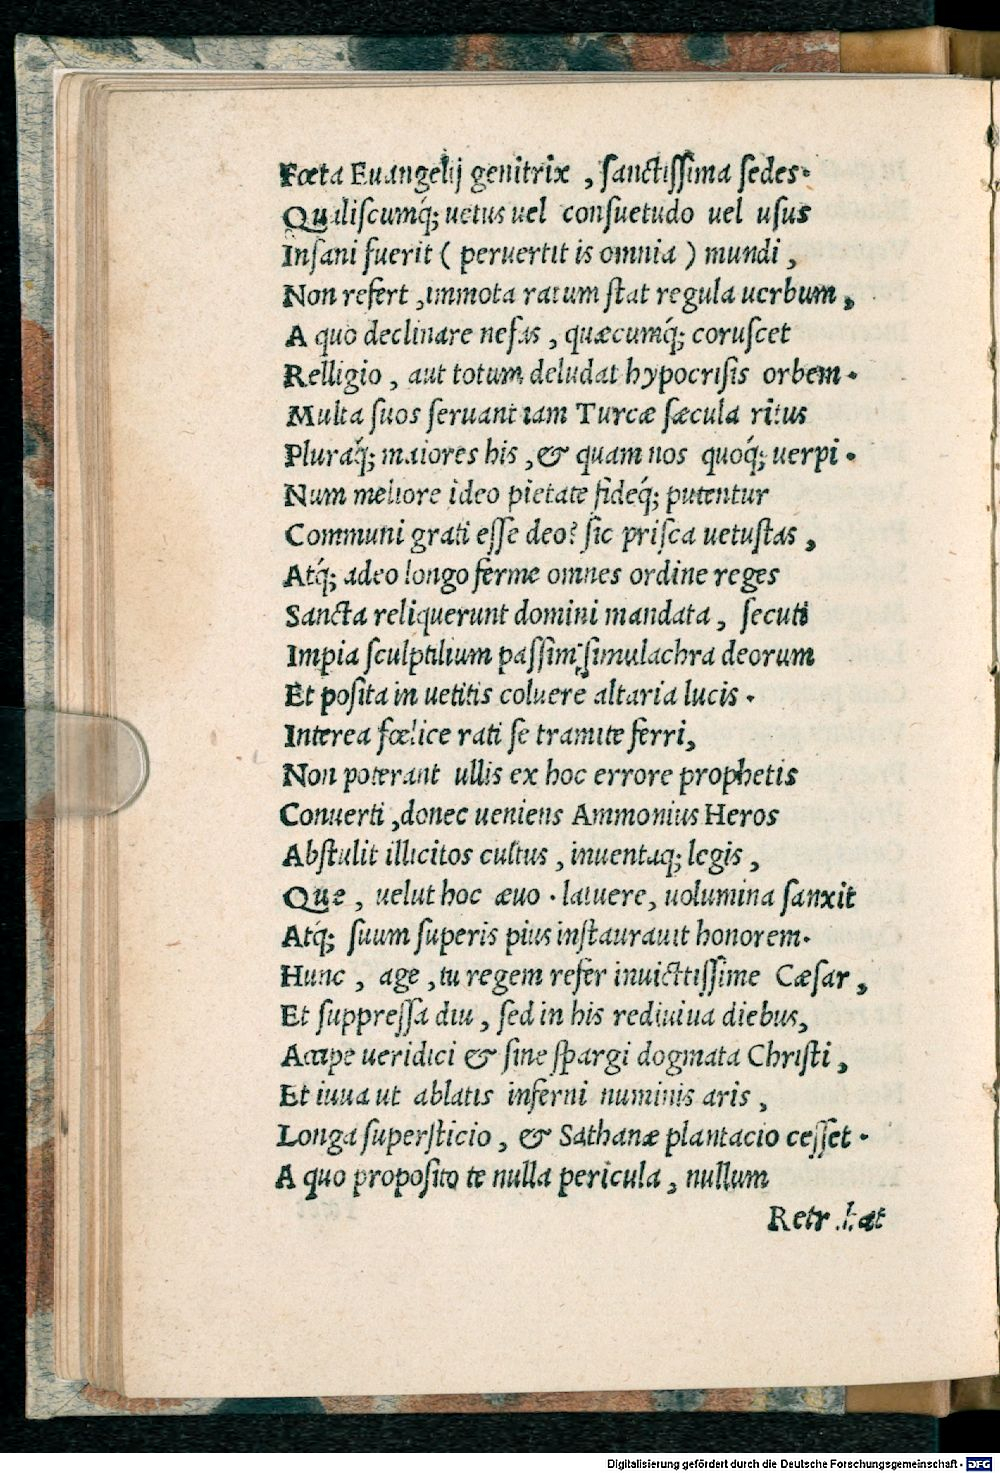 Fœta Euangelij genitrix , sanctissima sedes.
Qualiscumq́; uetus uel consuetudo uel usus
Insani fuerit ( peruertit is omnia ) mundi ,
Non refert , immota ratum stat regula uerbum ,
A quo declinare nefas , quæcumq́; coruscet
Relligio , aut totum deludat hypocrisis orbem.
Multa suos seruant iam Turcæ sæcula ritus
Pluraq́; maiores his , & quam nos quoq́; uerpi.
Num meliore ideo pietate fideq́; putentur
Communi grati esse deo? sic prisca uetustas ,
Atq́; adeo longo ferme omnes ordine reges
Sancta reliquerunt domini mandata , secuti
Impia sculptilium passim simulachra deorum
Et posita in uetitis coluere altaria lucis.
Interea fœlice rati se tramite ferri,
Non poterant ullis ex hoc errore prophetis
Conuerti , donec ueniens Ammonius Heros
Abstulit illicitos cultus , inuentaq; legis ,
Que , uelut hoc æuo . latuere, uolumina sanxit
Atq́; suum superis pius instaurauit honorem.
Hunc , age , tu regem refer inuicttissime Cæsar ,
Et suppressa diu , sed in his rediuiua diebus,
Accipe ueridici & sine spargi dogmata Christi ,
Et iuua ut ablatis inferni numinis aris ,
Longa supersticio , & Sathanæ plantacio cesset.
A quo proposito te nulla pericula , nullum
Digitalisierung gefördert durch die Deutsche Forschungsgemeinschaft - DFG